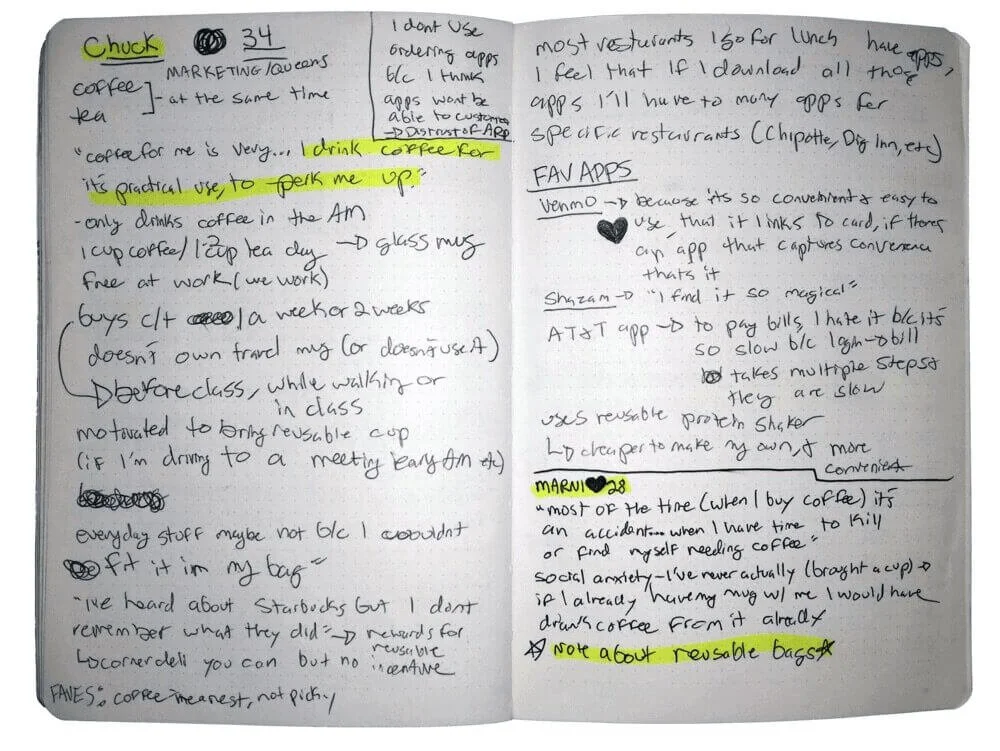 Chuck 34
MARKETING/Queens
coffee
tea
- at the same time
I dont use
ordering apps
b/c I think
apps wont be
able to customize
→ Distrust of App
"coffee for me is very... I drink coffee for
its practical use, to perk me up."
- only drinks coffee in the AM
1 cup coffee/1-2 cup tea day → glass mug
free at work (we work)
buys c/t 1 a week or 2 weeks
doesn't own travel mug (or doesn't use it)
→ before class, while walking or
in class
motivated to bring reusable cup
(if I'm driving to a meeting early AM etc)
everyday stuff maybe not b/c I wouldnt
fit it in my bag"
"I've heard about Starbucks but I dont
remember what they did" → rewards for
reusable
↳ corner deli you can but no incentive
FAVES: coffee = nearest, not picky
most resturants I go for lunch have apps,
I feel that if I download all those
apps I'll have to many apps for
specific restaurants (Chipotle, Dig Inn, etc)
FAV APPS
Venmo → because its so convenient & easy to
♥ use, that it links to card, if theres
an app that captures convenience
thats it
Shazam → "I find it so magical"
AT&T app → to pay bills, I hate it b/c it's
so slow b/c login → bill
takes multiple steps &
they are slow
uses reusable protein shaker
↳ cheaper to make my own, & more
convenient
MARNI ♥ 28
"most of the time (when I buy coffee) it's
an accident... when I have time to kill
or find myself needing coffee"
social anxiety - I've never actually (brought a cup) →
if I already have my mug w/ me I would have
drank coffee from it already
☆ Note about reusable bags ☆